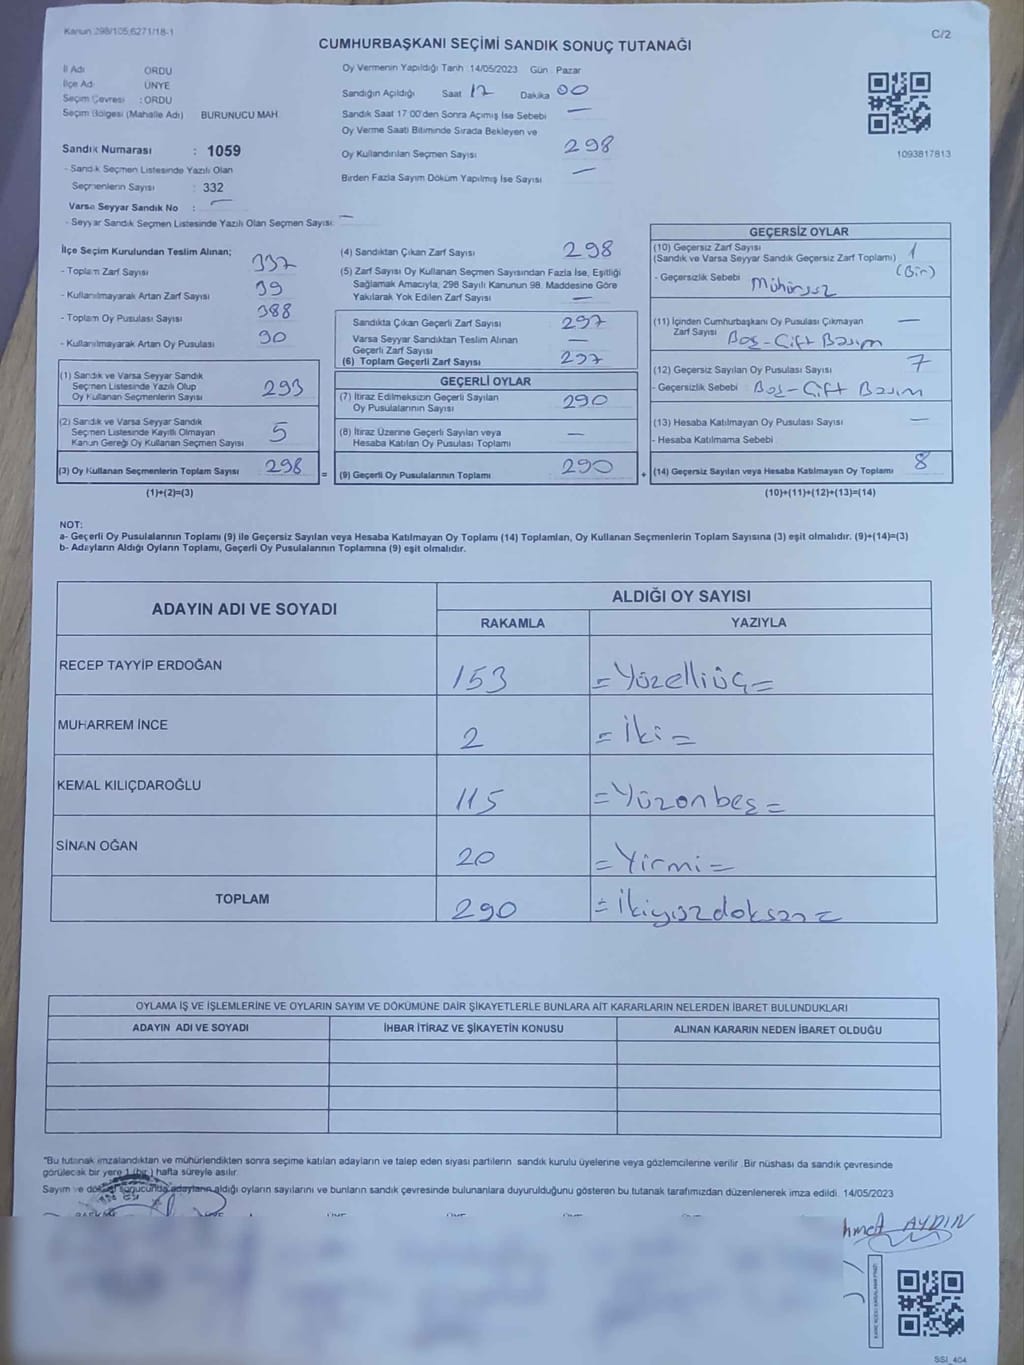 Kanun 298/105,6271/18-1
C/2
CUMHURBAŞKANI SEÇİMİ SANDIK SONUÇ TUTANAĞI
İl Adı ORDU
İlçe Adı ÜNYE
Seçim Çevresi : ORDU
Seçim Bölgesi (Mahalle Adı) BURUNUCU MAH.
Sandık Numarası : 1059
- Sandık Seçmen Listesinde Yazılı Olan
Seçmenlerin Sayısı : 332
Varsa Seyyar Sandık No : —
- Seyyar Sandık Seçmen Listesinde Yazılı Olan Seçmen Sayısı: —
Oy Vermenin Yapıldığı Tarih :14/05/2023 Gün : Pazar
Sandığın Açıldığı Saat 17 Dakika 00
Sandık Saat 17:00'den Sonra Açılmış İse Sebebi —
Oy Verme Saati Bitiminde Sırada Bekleyen ve
Oy Kullandırılan Seçmen Sayısı 298
Birden Fazla Sayım Döküm Yapılmış İse Sayısı —
1093817813
İlçe Seçim Kurulundan Teslim Alınan;
- Toplam Zarf Sayısı 337
- Kullanılmayarak Artan Zarf Sayısı 39
- Toplam Oy Pusulası Sayısı 388
- Kullanılmayarak Artan Oy Pusulası 90
(1) Sandık ve Varsa Seyyar Sandık
Seçmen Listesinde Yazılı Olup
Oy Kullanan Seçmenlerin Sayısı 293
(2) Sandık ve Varsa Seyyar Sandık
Seçmen Listesinde Kayıtlı Olmayan
Kanun Gereği Oy Kullanan Seçmen Sayısı 5
(3) Oy Kullanan Seçmenlerin Toplam Sayısı 298 =
(1)+(2)=(3)
(4) Sandıktan Çıkan Zarf Sayısı 298
(5) Zarf Sayısı Oy Kullanan Seçmen Sayısından Fazla İse, Eşitliği
Sağlamak Amacıyla, 298 Sayılı Kanunun 98. Maddesine Göre
Yakılarak Yok Edilen Zarf Sayısı —
Sandıkta Çıkan Geçerli Zarf Sayısı 297
Varsa Seyyar Sandıktan Teslim Alınan
Geçerli Zarf Sayısı —
(6) Toplam Geçerli Zarf Sayısı 297
GEÇERLİ OYLAR
(7) İtiraz Edilmeksizin Geçerli Sayılan
Oy Pusulalarının Sayısı 290
(8) İtiraz Üzerine Geçerli Sayılan veya
Hesaba Katılan Oy Pusulası Toplamı —
(9) Geçerli Oy Pusulalarının Toplamı 290 +
GEÇERSİZ OYLAR
(10) Geçersiz Zarf Sayısı 1
(Sandık ve Varsa Seyyar Sandık Geçersiz Zarf Toplamı) (Bir)
- Geçersizlik Sebebi Mühürsüz
(11) İçinden Cumhurbaşkanı Oy Pusulası Çıkmayan —
Zarf Sayısı Boş-Çift Basım
(12) Geçersiz Sayılan Oy Pusulası Sayısı 7
- Geçersizlik Sebebi Boş-Çift Basım
(13) Hesaba Katılmayan Oy Pusulası Sayısı —
- Hesaba Katılmama Sebebi
(14) Geçersiz Sayılan veya Hesaba Katılmayan Oy Toplamı 8
(10)+(11)+(12)+(13)=(14)
NOT:
a- Geçerli Oy Pusulalarının Toplamı (9) ile Geçersiz Sayılan veya Hesaba Katılmayan Oy Toplamı (14) Toplamları, Oy Kullanan Seçmenlerin Toplam Sayısına (3) eşit olmalıdır. (9)+(14)=(3)
b- Adayların Aldığı Oyların Toplamı, Geçerli Oy Pusulalarının Toplamına (9) eşit olmalıdır.
ADAYIN ADI VE SOYADI
ALDIĞI OY SAYISI
RAKAMLA YAZIYLA
RECEP TAYYİP ERDOĞAN 153 =Yüzelliüç=
MUHARREM İNCE 2 =İki=
KEMAL KILIÇDAROĞLU 115 =Yüzonbeş=
SİNAN OĞAN 20 =Yirmi=
TOPLAM 290 =İkiyüzdoksan=
OYLAMA İŞ VE İŞLEMLERİNE VE OYLARIN SAYIM VE DÖKÜMÜNE DAİR ŞİKAYETLERLE BUNLARA AİT KARARLARIN NELERDEN İBARET BULUNDUKLARI
ADAYIN ADI VE SOYADI İHBAR İTİRAZ VE ŞİKAYETİN KONUSU ALINAN KARARIN NEDEN İBARET OLDUĞU
"Bu tutanak imzalandıktan ve mühürlendikten sonra seçime katılan adayların ve talep eden siyasi partilerin sandık kurulu üyelerine veya gözlemcilerine verilir. Bir nüshası da sandık çevresinde
görülecek bir yere 1 (bir) hafta süreyle asılır.
Sayım ve döküm sonucunda adayların aldığı oyların sayılarını ve bunların sandık çevresinde bulunanlara duyurulduğunu gösteren bu tutanak tarafımızdan düzenlenerek imza edildi. 14/05/2023
hmet AYDIN
SSİ_404